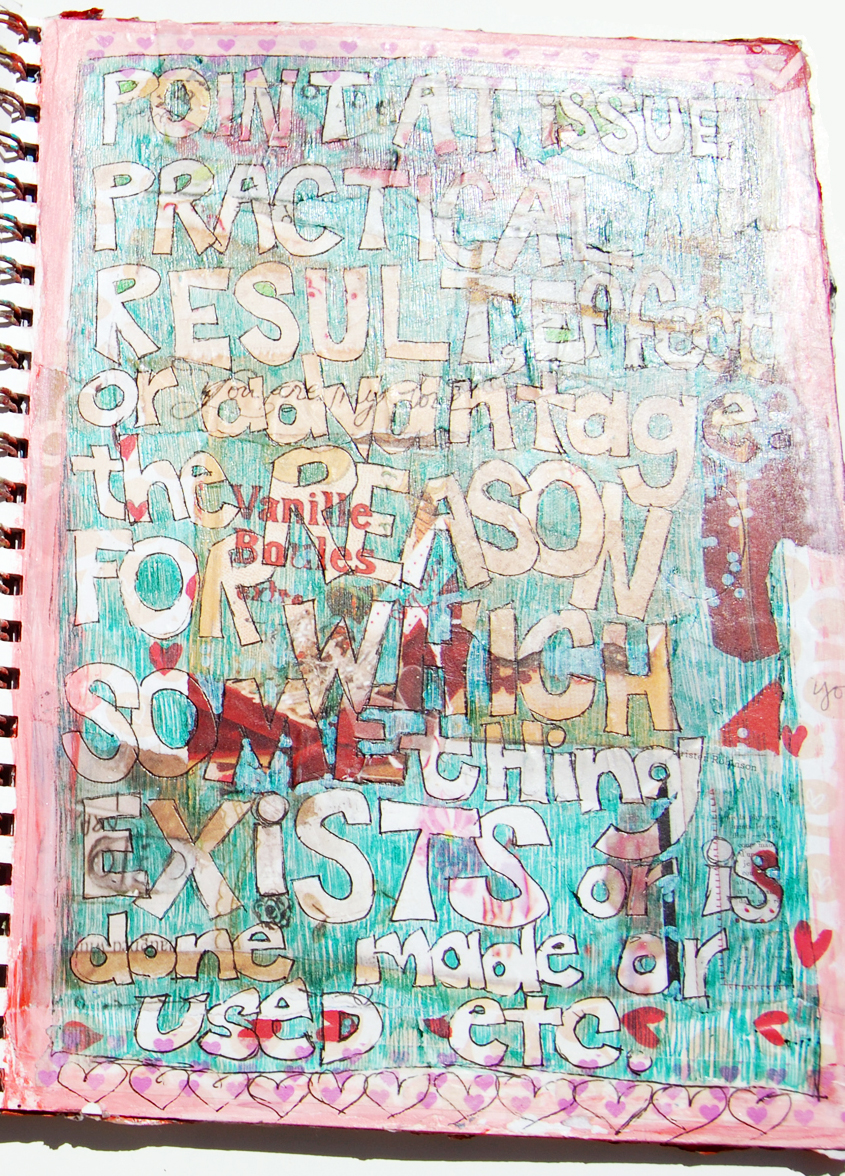 POINT AT iSSUE,
PRACTICAL
RESULT, Effect
or advantage:
the REASON
Vanille
FOR
WHICH
SOMEtHing
EXiSTS or is
done made or
useD etc.